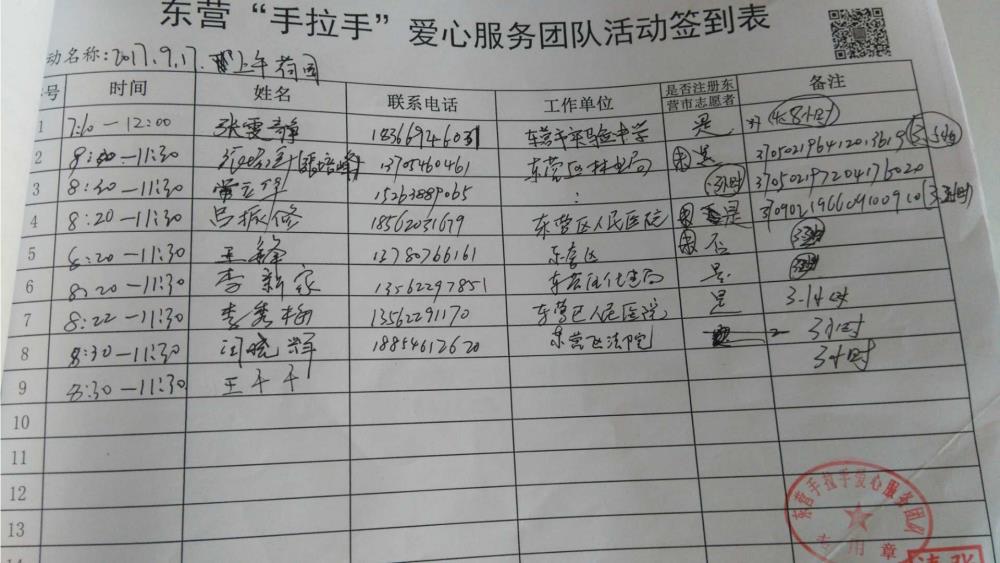 东营“手拉手”爱心服务团队活动签到表
动名称:2017.9.17. 上午 荷园
号 时间 姓名 联系电话 工作单位 是否注册东营市志愿者 备注
1 7:10—12:00 张雯静 18366946031 东营市实验中学 是 (4.8小时)
2 8:30—11:30 (张培峰) 13705460461 东营区林业局 是 370502196412013619
3 8:30—11:30 15263889065 370502197204176020
4 8:20—11:30 吕振修 18562031679 东营区人民医院 是
5 8:20—11:30 王锋 13780766161 东营区 否
6 8:20—11:30 李新家 13562297851 是
7 8:22—11:30 李秀梅 13562291170 东营区人民医院 是 3.14时
8 8:30—11:30 闫晓辉 18854612620 东营区法院 3小时
9 8:30—11:30 王千千 3小时
10
11
12
13
东营手拉手爱心服务团队
专用章